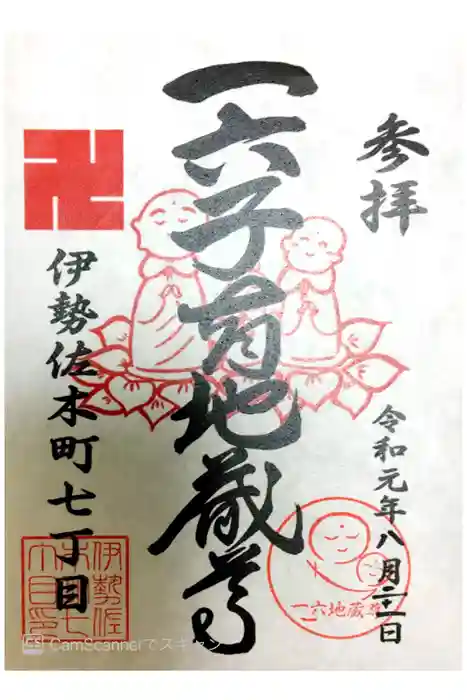 参拝
令和元年八月
一六子育地蔵尊
伊勢佐木町七丁目
一六地蔵尊
伊勢佐
CS CamScannerでスキャン